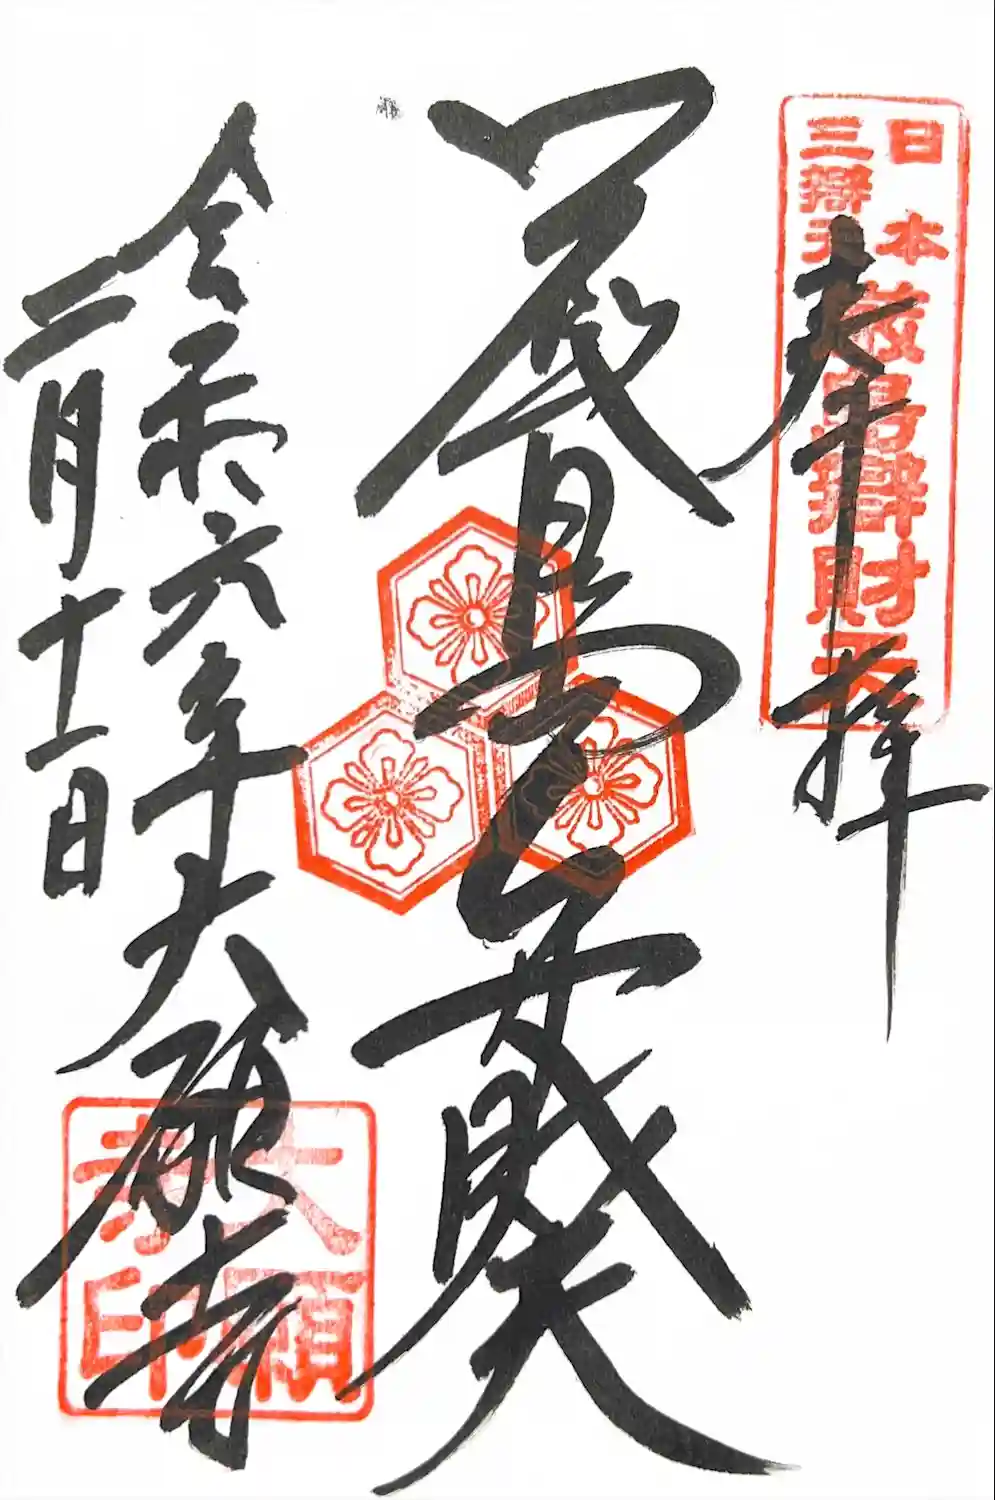 日本
三辯天
厳島辯財天
奉拝
厳島弁財天
令和六年
二月十一日
大願寺
大願
寺印